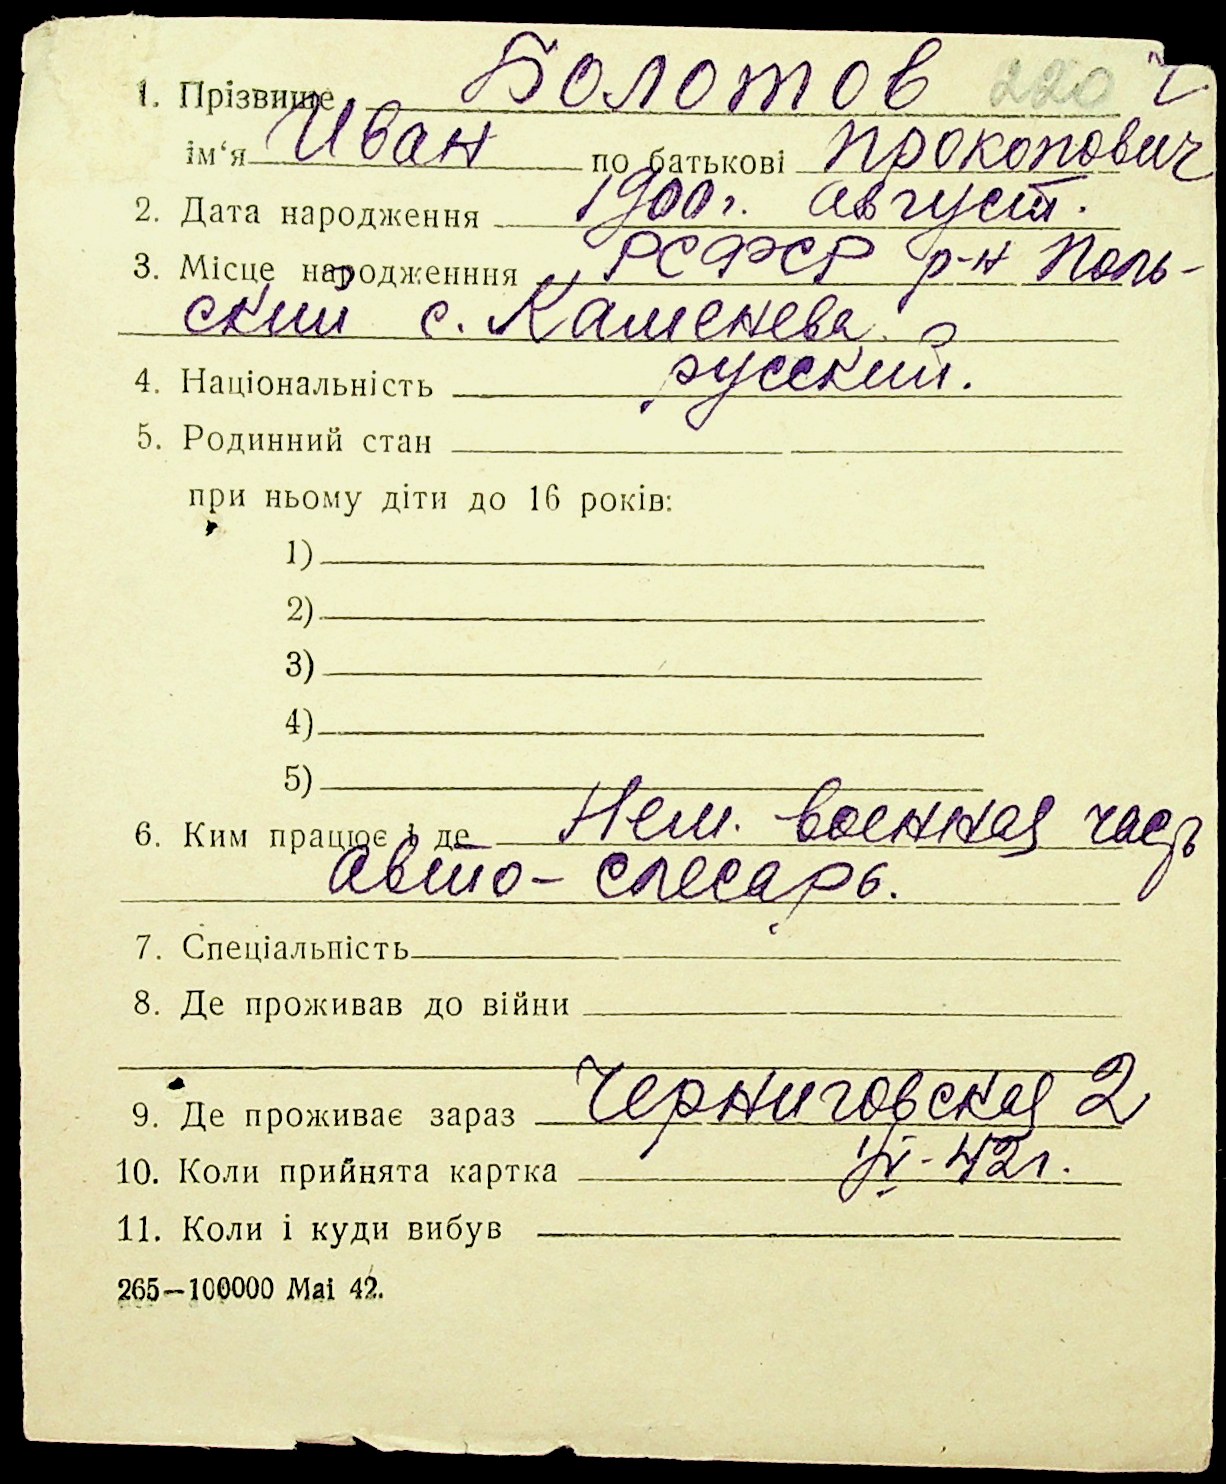 1. Прізвище Болотов 220 Ч
ім‘я Иван по батькові Прокопович
2. Дата народження 1900 г. август.
3. Місце народженння РСФСР р-н Поль-
ский с. Каменева
4. Національність русский.
5. Родинний стан
при ньому діти до 16 років:
1)
2)
3)
4)
5)
6. Ким працює і де Нем. военная часть
авто-слесарь.
7. Спеціальність
8. Де проживав до війни
9. Де проживає зараз Черниговская 2
10. Коли прийнята картка -42 г.
11. Коли і куди вибув
265—100000 Mai 42.